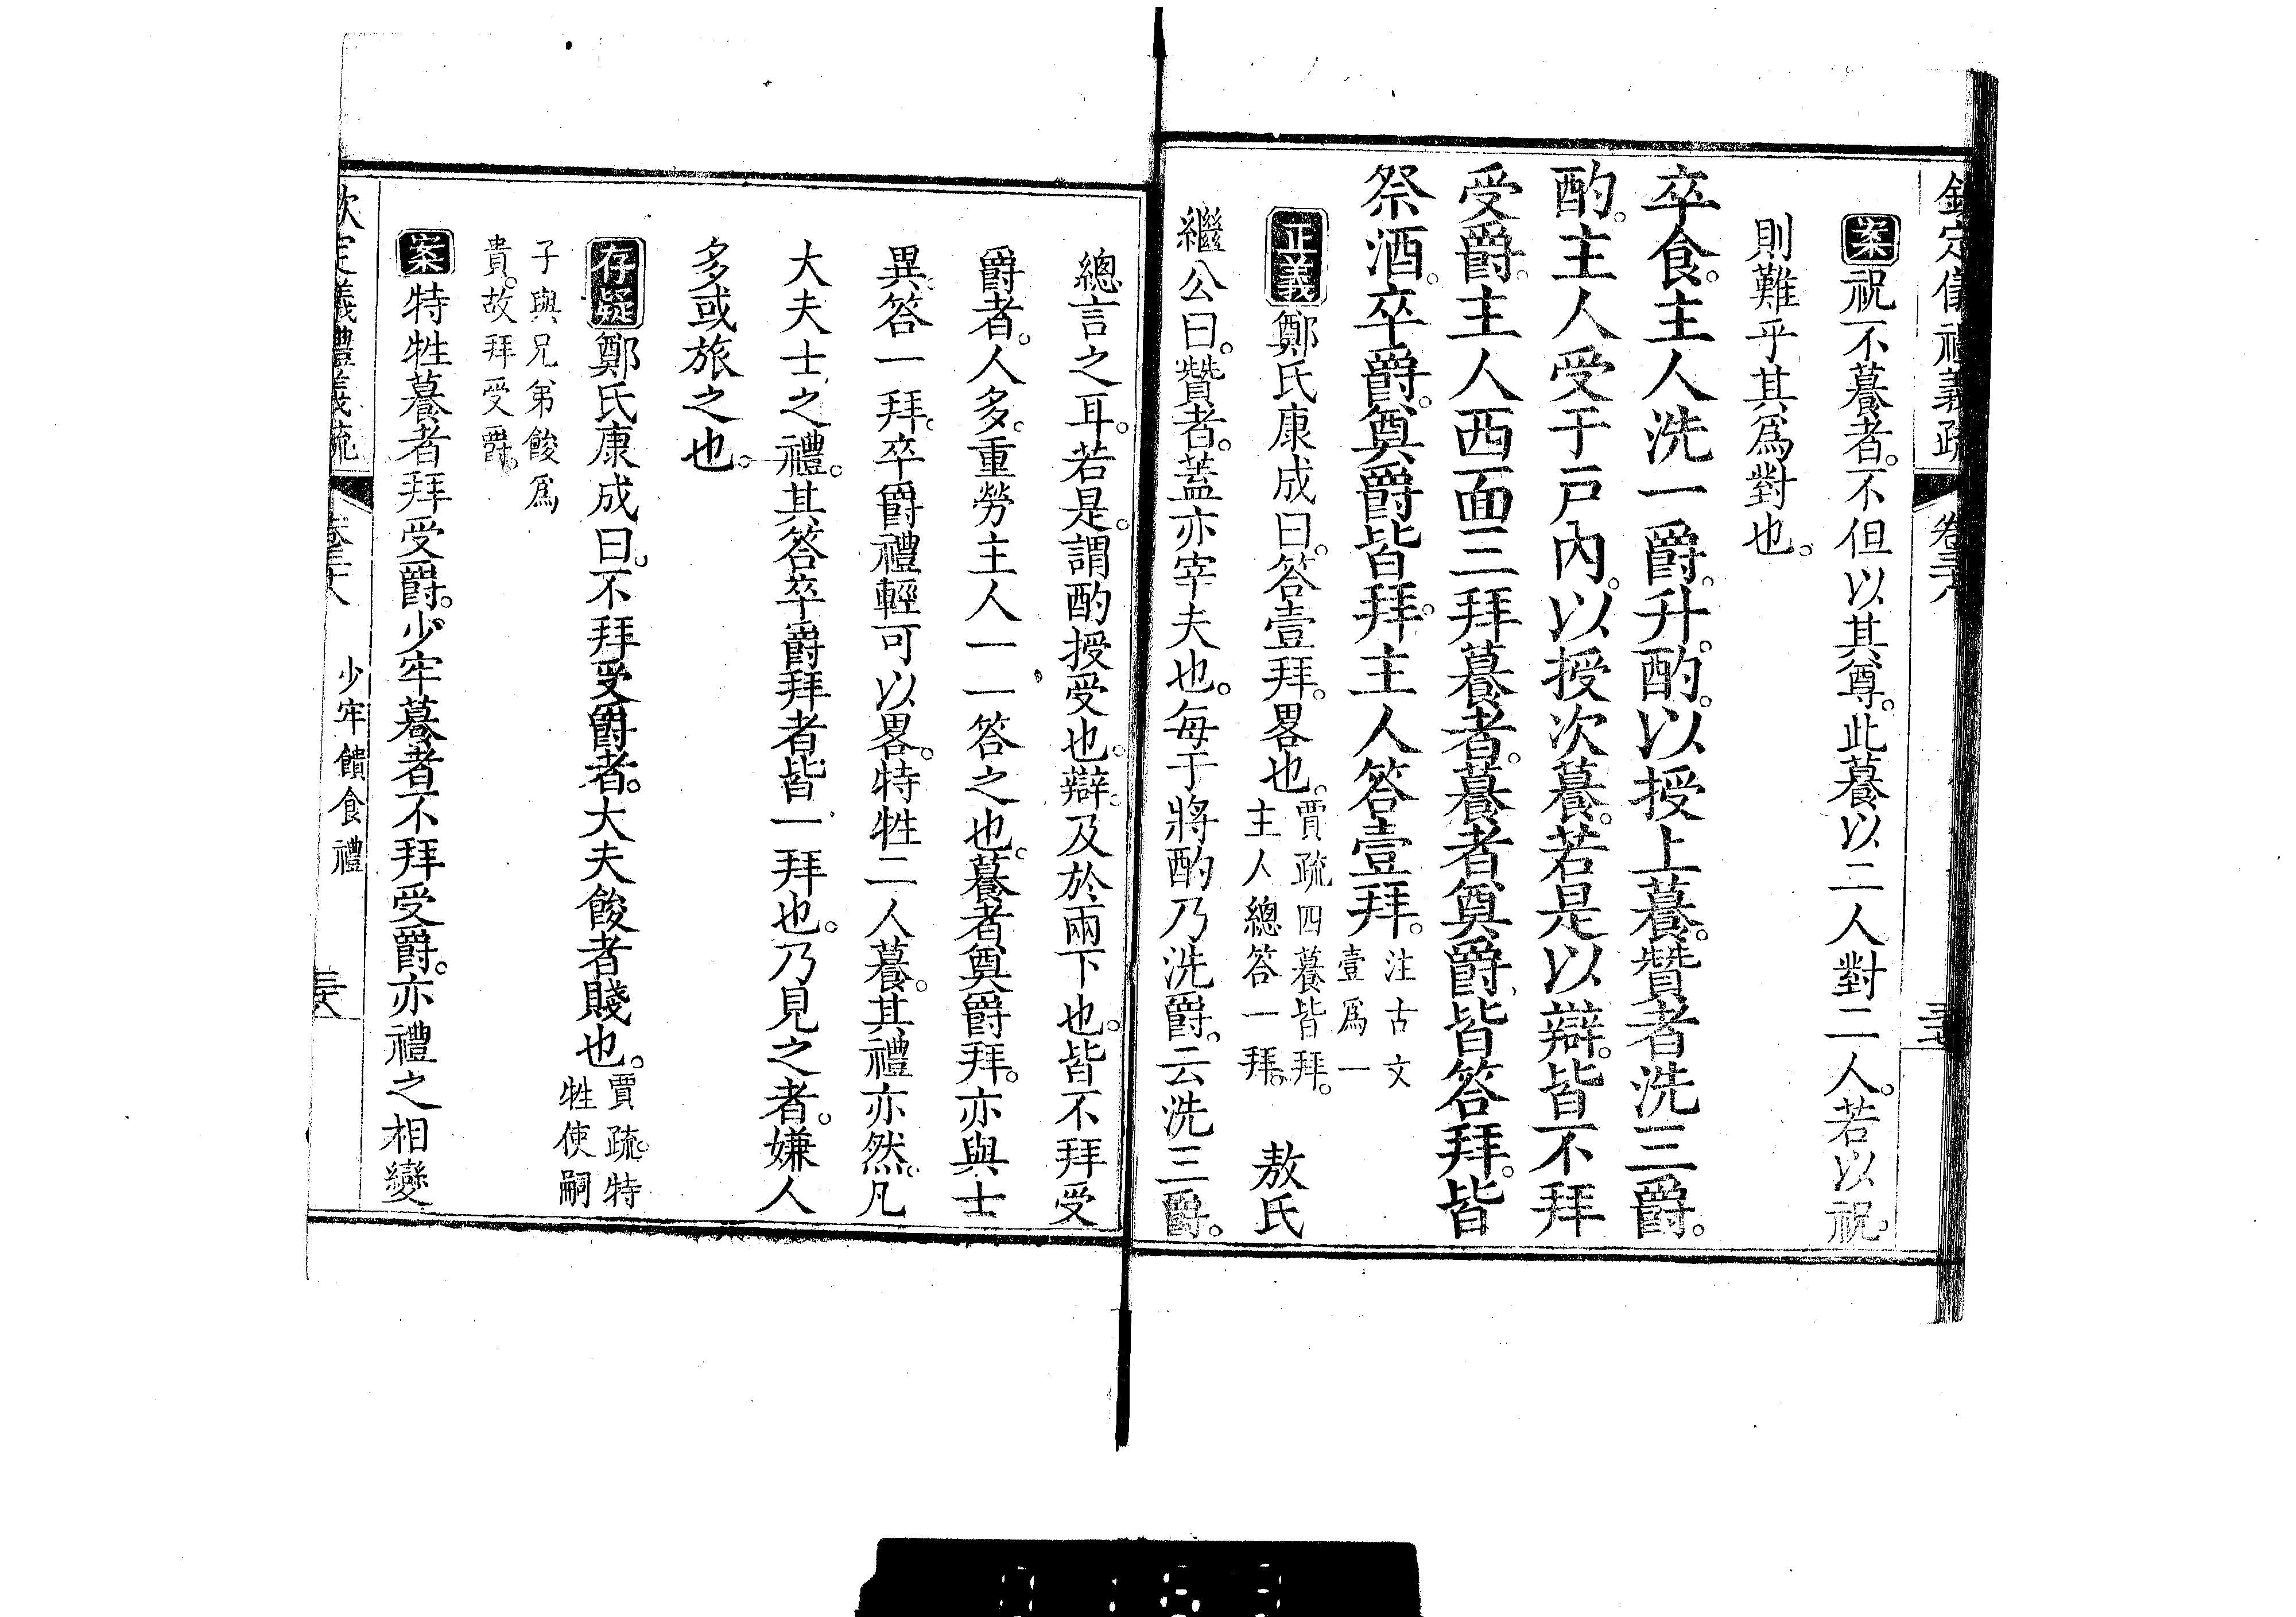 欽定儀禮義疏 卷三十八 三十七
案祝不䬸者。不但以其尊。此䬸以二人對二人。若以祝。
則難乎其爲對也。
卒食。主人洗一爵。升。酌。以授上䬸。贊者洗三爵。
酌。主人受于戸內。以授次䬸。若是以辯。皆不拜
受爵。主人西面三拜䬸者。䬸者奠爵。皆答拜。皆
祭酒。卒爵。奠爵。皆拜。主人答壹拜。注古文
壹爲一
正義鄭氏康成曰。答壹拜。畧也。賈疏四䬸皆拜。
主人總答一拜。敖氏
繼公曰。贊者。蓋亦宰夫也。每于將酌乃洗爵。云洗三爵。
總言之耳。若是。謂酌授受也。辯。及於兩下也。皆不拜受
爵者。人多。重勞主人一一答之也。䬸者奠爵拜。亦與士
異。答一拜。卒爵禮輕可以畧。特牲二人䬸。其禮亦然。凡
大夫士之禮。其答卒爵拜者皆一拜也。乃見之者。嫌人
多或旅之也。
存疑鄭氏康成曰。不拜受爵者。大夫餕者賤也。賈疏。特
牲使嗣
子與兄弟餕爲
貴。故拜受爵。
案特牲䬸者拜受爵。少牢䬸者不拜受爵。亦禮之相變
欽定儀禮義疏 卷三十八 少牢饋食禮 三十八